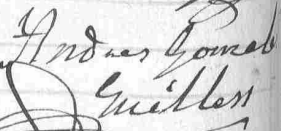 Andres Gomeb
Guillen